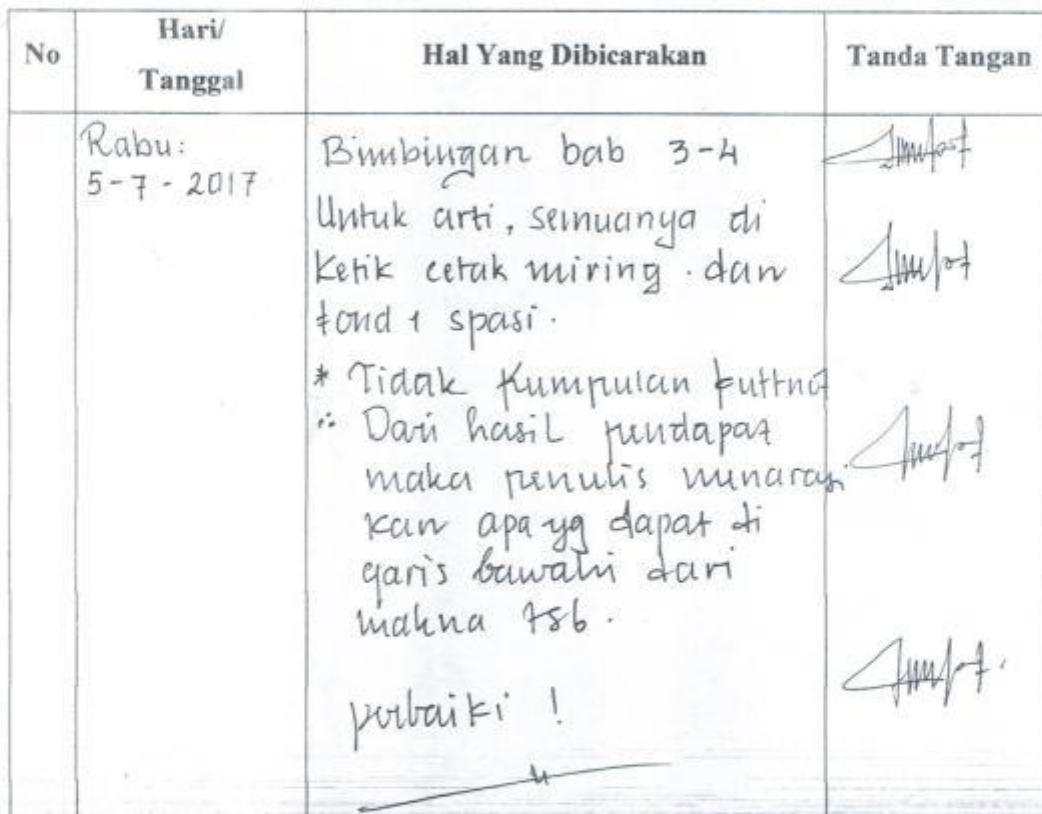 No
Hari/
Tanggal
Hal Yang Dibicarakan
Tanda Tangan
Rabu:
5-7-2017
Bimbingan bab 3-4
Untuk arti, semuanya di
Ketik cetak miring. dan
fond 1 spasi.
* Tidak Kumpulan futtnot
Dari hasil pendapat
maka penulis menarasi
kan apa yg dapat di
garis bawahi dari
makna tsb.
perbaiki !